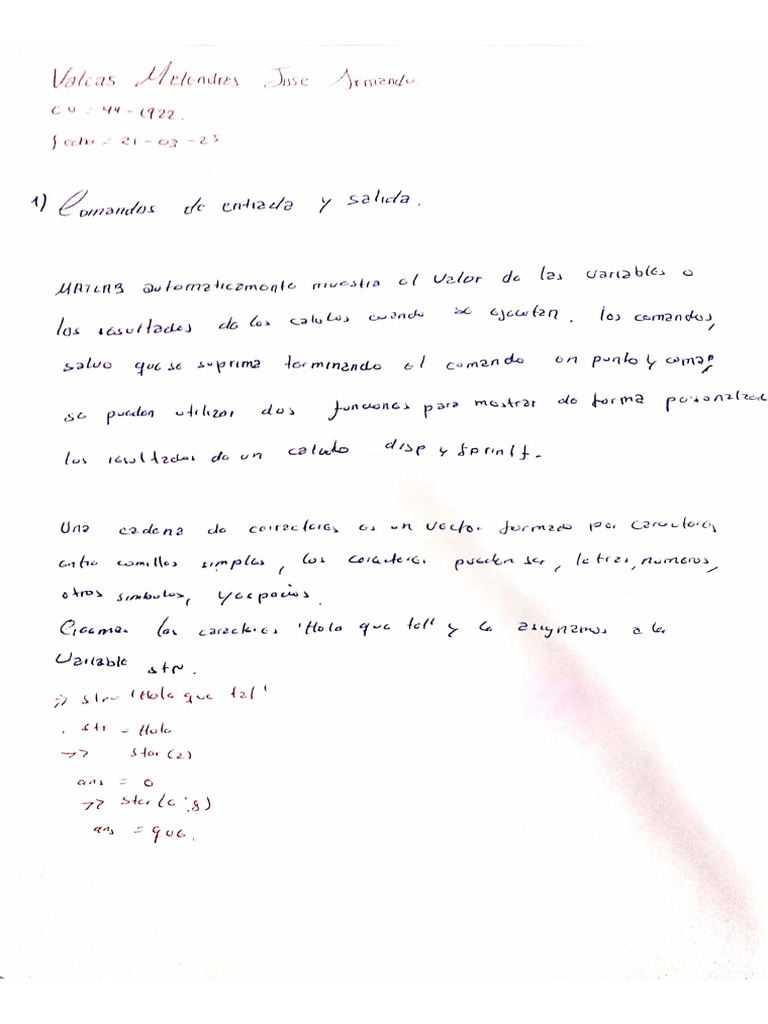 Valeas Melendres Jose Armando
CU = 44-1922.
fecha = 21-03-23
1) Comandos de entrada y salida.
MATLAB automaticamente muestra el valor de las variables o
los resultados de los calulos cuando se ejecutan. los comandos,
salvo que se suprima terminando el comando en punto y coma,
se pueden utilizar dos funciones para mostrar de forma personalizada
los resultados de un calculo disp y fprintf.
Una cadena de correcteres es un vector formado por caracteres
entre comillas simples, los caracteres pueden ser, letras, numeros,
otros simbolos, y espacios.
Creamos los caracteres 'Hola que tal' y la asignamos a la
Variable str.
>> str= 'Hola que tal'
. str = Hola
>> star(2)
ans = 0
>> ster(6:8)
ans = que.